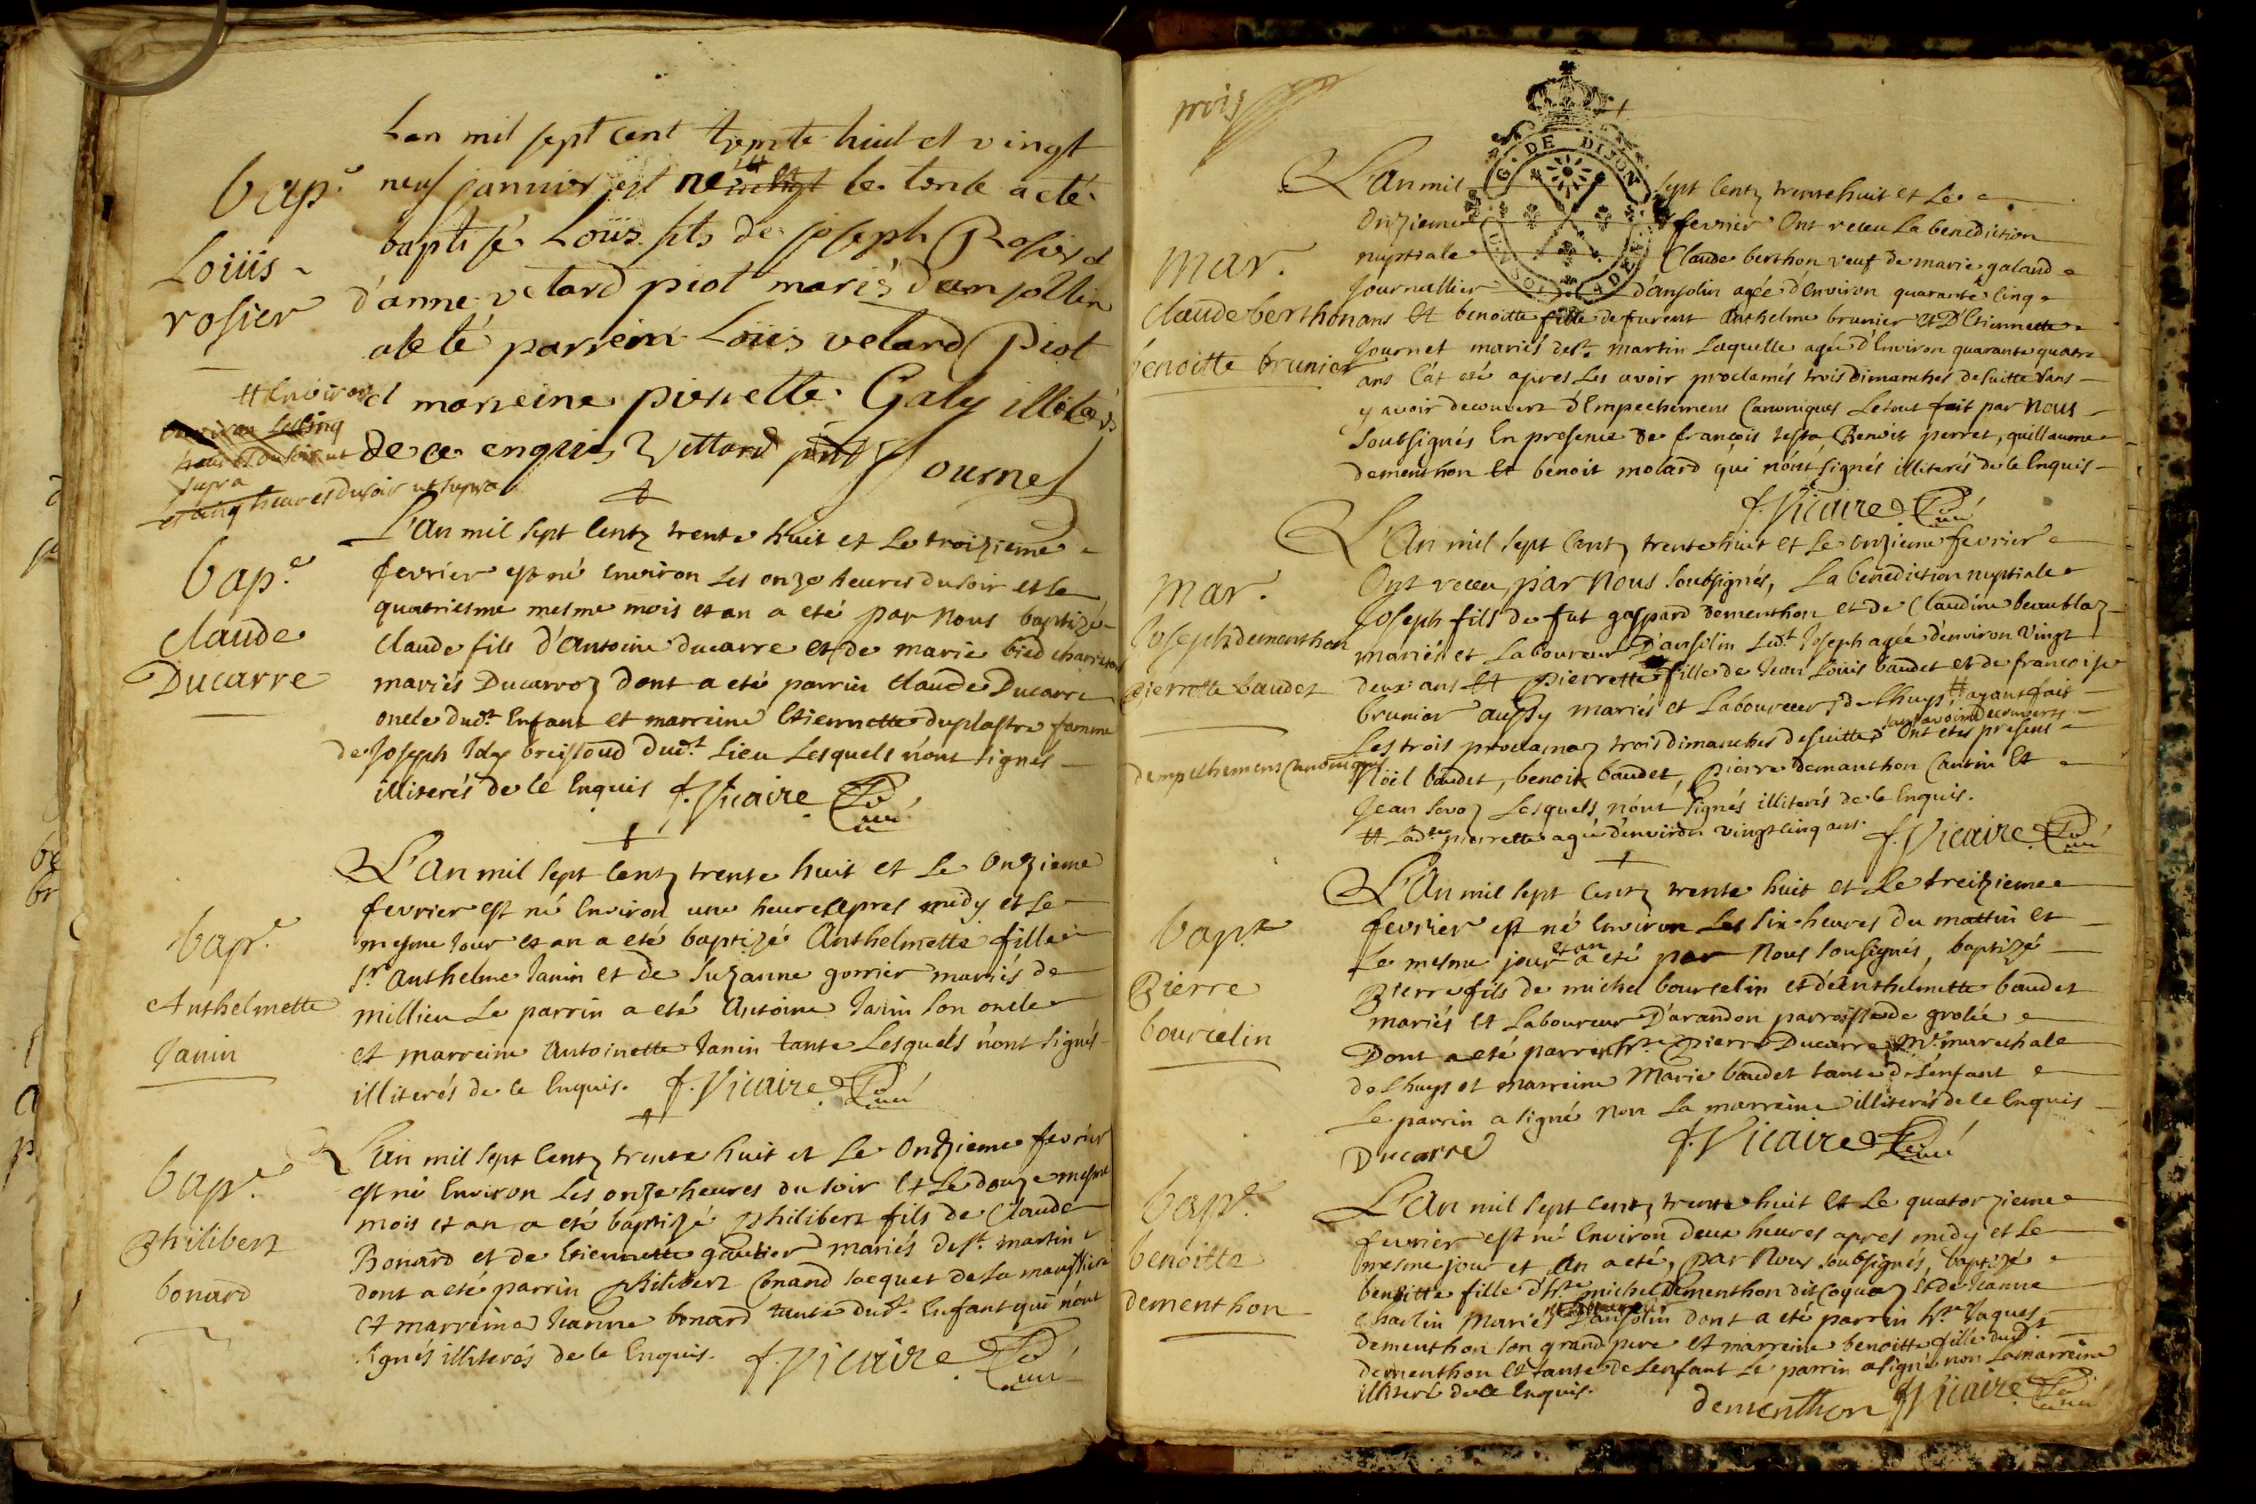 bap.e
Loüis
rosier
Lan mil sept cent trente huit et vingt
neuf janvier est né # le tout a eté
baptisé Loüis fils de joseph Rosier et
d'anne vetard piot mariés d'ansollin
a eté parrein Loüis vetard Piot
et marreine pierrette Galy illiterés
de ce enquis Vettard Journet
# Environ
environ les cinq
heures du soir ut
supra
les cinq heures du soir ut supra
bap.e
claude
Ducarre
L'An mil sept Centz trente huit et Le troizieme
fevrier est né Environ Les onze heures du soir et Le
quatriesme mesme mois et an a eté par Nous baptizé
Claude fils d'Antoine ducarre et de marie bied charreton
mariés Ducarroz Dont a eté parrin Claude Ducarre
oncle dud.t Enfant et marreine Etiennette duplastre famme
de Joseph Jdy breistoud dud.t Lieu Lesquels n'ont signés
illiterés de Ce Enquis f. Vicaire Curé
bap.e
Anthelmette
Janin
L'An mil sept Centz trente huit et Le Onzieme
fevrier est né Environ une heure apres midy et Le
mesme Jour et an a eté baptizé Anthelmette fille
S.r Anthelme Janin et de Suzanne gorrier mariés de
millieu Le parrin a eté Antoine Janin son oncle
et marreine Antoinette Janin tante Lesquels n'ont signés
illiterés de Ce Enquis. f. Vicaire Curé
bap.e
Philibert
bonard
L'An mil sept Centz trente huit et Le Onzieme fevrier
est né Environ Les onze heures du soir Et Le douze mesme
mois et an a eté baptizé Philibert fils de Claude
Bonard et de Etiennette gautier mariés de S.t martin
dont a eté parrin Philibert bonard Jacquet de La
et marreine Jeanne bonard tante dud.t Enfant qui n'ont
signés illiterés de Ce Enquis. f. Vicaire Curé
trois
G. DE DIJON
mar.
Claude berthon
benoitte brunier
L'An mil sept Centz trente huit et Le
Onzieme fevrier Ont receu La benediction
nuptiale Claude berthon veuf de marie galand
Journallier d'ansolin agée d'Environ quarante Cinq
ans Et benoitte fille de furent Anthelme brunier et D'Etiennette
Journet mariés de S.t martin Laquelle agée d'Environ quarante quatre
ans C'at eté apres Les avoir proclamés trois dimanches de suitte sans
y avoir decouvert d'Empechemens Canoniques Le tout fait par Nous
Soubsignés En presence De françois testa Benoit perret, guillaume
dementhon Et benoit molard qui n'ont signés illiterés de Ce Enquis
f. Vicaire Curé
mar.
Joseph dementhon
pierrette baudet
L'An mil sept Centz trente huit et Le onzieme fevrier
Ont receu par Nous Soubsignés, La benediction nuptiale
Joseph fils de fut gaspard dementhon et de Claudine beaublaz
mariés et Laboureur D'ansolin Led.t Joseph agée d'environ vingt
deux ans Et pierrette fille de Jean Loüis baudet et de francoise
brunier aussy mariés et Laboureur de Lhuys # ayant fait
Les trois proclamaz trois dimanches de suittes sans avoir decouvers
d'empechemens Canoniques Ont etés presens
Noël baudet, benoit baudet, Pierre demanthon Cantin Et
Jean Sevoz Lesquels n'ont signés illiterés de Ce Enquis.
# Lad.te pierrette agée d'environ vingt Cinq ans. f. Vicaire Curé
bap.e
Pierre
bourcelin
L'An mil sept Centz trente huit et Le treizieme
fevrier est né Environ Les Six heures du mattin et
Le mesme jour et an a eté par Nous Sousignés, baptizé
Pierre fils de michel bourcelin et d'Enthelmette baudet
mariés et Laboureur D'arandon parroisse de groleé
Dont a eté parren h.te Pierre Ducarre M.e marechale
de Lhuys et marreine Marie baudet tante de L'enfant
Le parrin a signé Non La marreine illiterés de Ce Enquis
Ducarre f. Vicaire Curé
bap.e
benoitte
dementhon
L'An mil sept Centz trente huit Et Le quatorzieme
fevrier est né Environ deux heures apres midy et Le
mesme jour et An a eté, par Nous soubsignés, baptizé
benoitte fille d'h.te michel Dementhon dit Coquaz Et de Jeanne
Chaelin Mariés D'ansolin dont a eté parrin h.te Jaques
dementhon son grand pere et marreine benoitte fille dud.t
dementhon Et tante de L'enfant Le parrin a signé non La marreine
illiteré de Ce Enquis.
dementhon f. Vicaire Curé